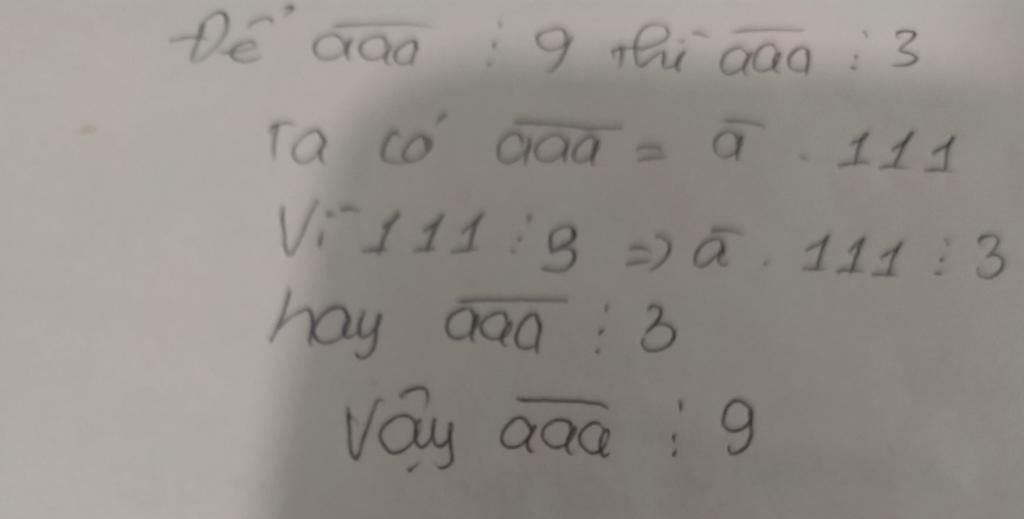 Để aaa ⋮ 9 thì aaa ⋮ 3
Ta có aaa = a . 111
Vì 111 ⋮ 9 => a . 111 ⋮ 3
hay aaa ⋮ 3
Vậy aaa ⋮ 9